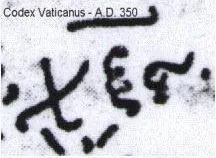 Codex Vaticanus - A.D. 350
χξϛ